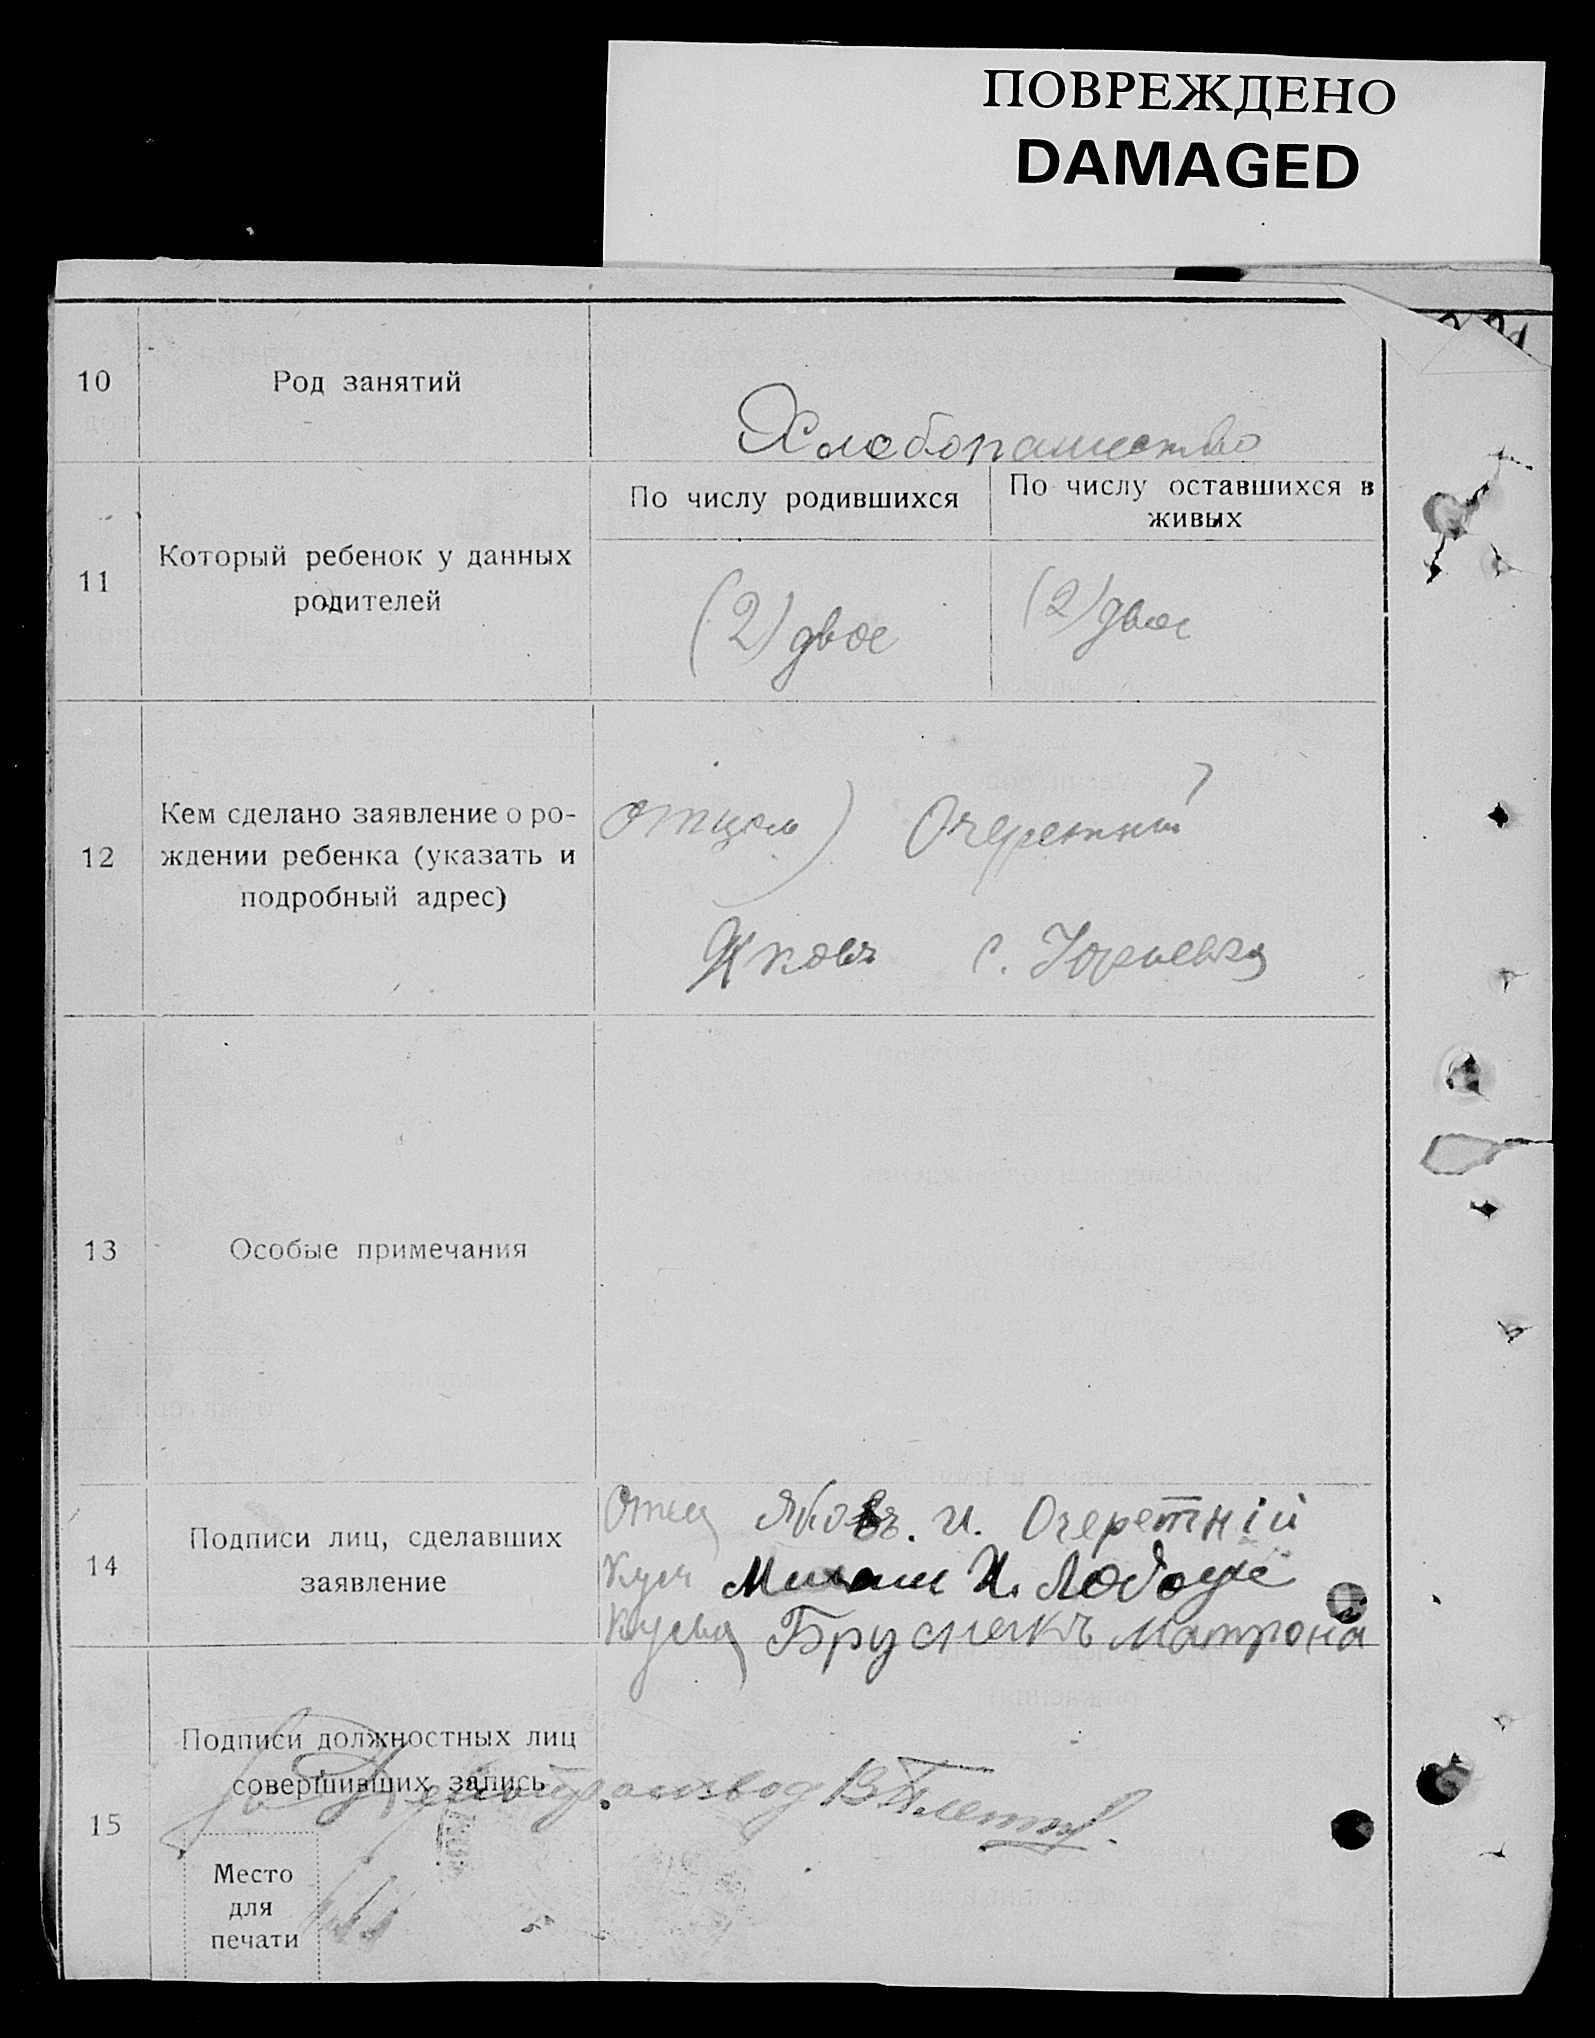 ПОВРЕЖДЕНО
DAMAGED
10 Род занятий
Хлебопашество
11 Который ребенок у данных
родителей
По числу родившихся
По числу оставшихся в
живых
(2) двое
(2) двое
12 Кем сделано заявление о ро-
ждении ребенка (указать и
подробный адрес)
отцом) Очеретный
Яковъ с. Юрьевка
13 Особые примечания
14 Подписи лиц, сделавших
заявление
Отец Яковъ. И. Очеретній
Кум И.
Кума Матрона
15 Подписи должностных лиц
совершивших запись
Делопроизвод
Место
для
печати